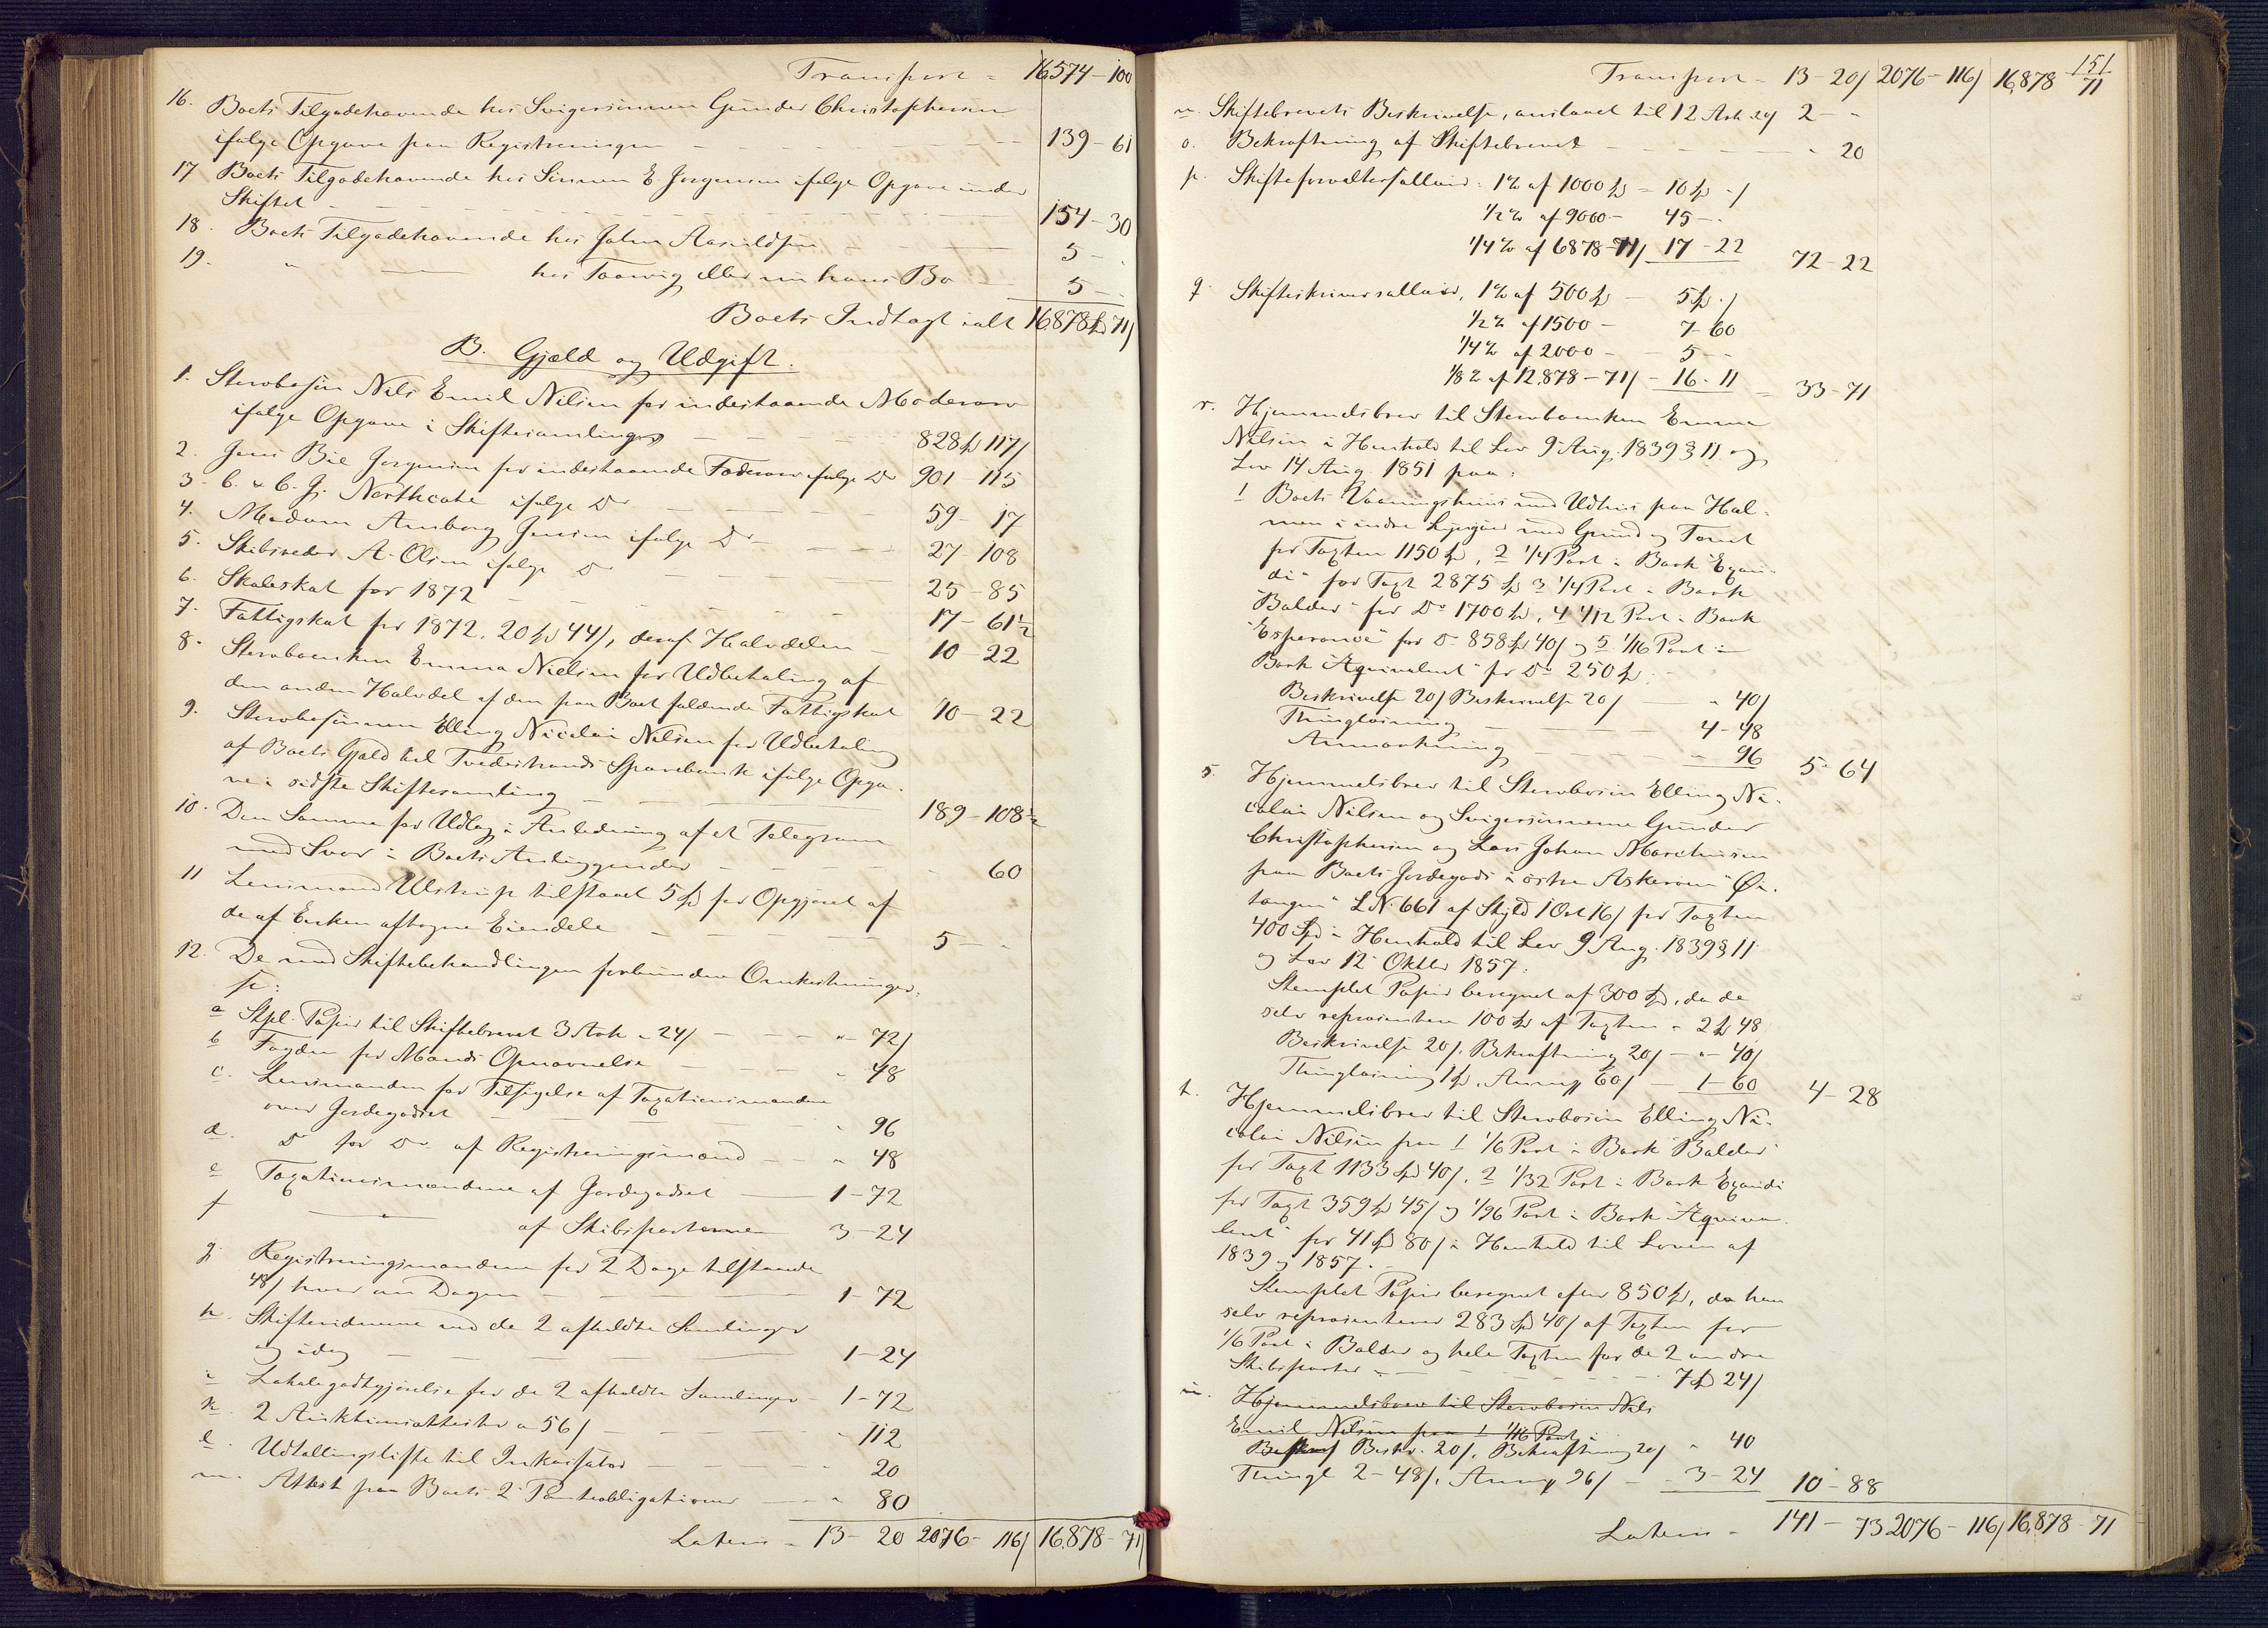 Transport = 16574 - 100
16. Boets Tilgodehavende hos Svigersønnen Gunder Christophersen
ifølge Opgave paa Registreringen - - - 139 - 61
17 Boets Tilgodehavende hos Sønnen E. Jørgensen ifølge Opgave under
Skiftet - - - 154 - 30
18. Boets Tilgodehavende hos Johan Aasulds̄en - 5 - .
19. " — hos Taarvig eller nu hans Bo - 5 - .
Boets Indtægt ialt 16878 Spd 71 /
B. Gjæld og Udgift.
1. Stervbosøn Nils Emil Nilsen for indestaaende Mødrearv
ifølge Opgave i Skiftesamlingen - - - 828 Spd 117 /
2. Jens Bie Jørgensen for indestaaende Fædrearv ifølge Do 901 - 115
3. C. & C. J. Northcote ifølge Do - - - 59 - 17
4. Madam Amborg Jensen ifølge Do - - - 27 - 108
5. Skibsreder A. Olsen ifølge Do - - - 25 - 85
6. Skoleskat for 1872 - - - 17 - 61½
7. Fattigskat for 1872, 20 Spd 44 /, deraf Halvdelen - 10 - 22
8. Stervboenken Emma Nielsen for Udbetaling af
den anden Halvdel af den paa Boet faldende Fattigskat 10 - 22
9. Stervbosønnen Elling Nicolai Nilsen for Udbetaling
af Boets Gjæld til Tvedestrands Sparebank ifølge Opga-
ve i sidste Skiftesamling - - - 189 - 108½
10. Den Samme for Udlæg i Anledning af et Telegram
med Svar i Boets Anliggender - - - 60
11 Lensmand Ulstrup tilstaaet 5 Spd for Opgjøret af
de af Enken aftagne Eiendele - - - 5 - .
12. De med Skiftebehandlingen forbundne Omkostninger,
se:
a Stpl. Papir til Skiftebrevet 3 Ark a 24 / - - - " - 72 /
b Fogden for Mænds Opnævnelse - - - " 48
c. Lensmanden for Tilsigelse af Taxationsmændene
over Jordegodset - - - " 96
d. Do for Do af Registreringsmænd - - " 48
e Taxationsmændene af Jordegodset — 1 - 72
f — " — af Skibsparterne 3 - 24
g. Registreringsmændene for 2 Dage tilstaaede
48 / hver om Dagen - - - 1 - 72
h. Skiftevidnerne ved de 2 afholdte Samlinger
og idag - - - 1 - 24
i Lokalegodtgjørelse for de 2 afholdte Samlinger - 1 - 72
k 2 Auktionsattester a 56 / - - - " 112
l. Udtallingsliste til Inkassator - - - " 20
m. Attest paa Boets 2 Panteobligationer - - " 80
Lateris = 13 - 20 2076 - 116 / 16,878 - 71 /
151
Transport - 13 - 20 / 2076 - 116 / 16,878 71
n. Skiftebrevets Beskrivelse, anslaaet til 12 Ark 2 - .
o. Bekræftning af Skiftebrevet - - - " 20
p. Skifteforvaltersallair: 1% af 1000 Spd = 10 Spd " /
1/2% af 9000 - 45 - .
1/4% af 6878 - 71 / 17 - 22 72 - 22
q. Skifteskriversallair, 1% af 500 Spd - 5 Spd . /
1/2% af 1500 - 7 - 60
1/4% af 2000 - - 5 - .
1/8% af 12,878 - 71 / - 16 - 11 = 33 - 71
r. Hjemmelsbrev til Stervboenken Emma
Nilsen i Henhold til Lov 9 Aug. 1839 § 11 og
Lov 14 Aug. 1851 paa:
1 Boets Vaaningshus med Udhus paa Hol-
men i indre Lyngør med Grund og Tomt
for Taxten 1150 Spd, 2 1/4 Part i Bark "Exau-
di" for Taxt 2875 Spd 3 1/4 Part i Bark
"Balder" for Do 1700 Spd, 4 1/12 Part i Bark
"Esperance" for Do 858 Spd 40 / og 5 1/16 Part i
Bark "Æquivalent" for Do 250 Spd:
Beskrivelse 20 / Beskrivelse 20 / - " 40 /
Thinglæsning - - - 4 - 48
Anmærkning - - - " 96 5 - 64
s. Hjemmelsbrev til Stervbosøn Elling Ni-
colai Nilsen og Svigersønnerne Gunder
Christophersen og Lars Johan Marcelinsen
paa Boets Jordegods i østre Askerøen "Øi-
tangen" L.No 661 af Skyld 1 Ort 16 / for Taxten
400 Spd i Henhold til Lov 9 Aug. 1839 § 11
og Lov 12 Oktbr 1857:
Stemplet Papir beregnet af 300 Spd, da de
selv repræsentere 100 Spd af Taxten " 2 Spd 48
Beskrivelse 20 /. Bekræftning 20 / - " - 40 /
Thinglæsning 1 Spd, Anmp 60 / - 1 - 60 4 - 28
t. Hjemmelsbrev til Stervbosøn Elling Ni-
colai Nilsen paa 1 1/6 Part i Bark "Balder"
for Taxt 1133 Spd 40 /. 2 1/32 Part i Bark Exaudi
for Taxt 359 Spd 45 / og 1/96 Part i Bark "Æquiva-
lent" for 41 Spd 80 / i Henhold til Loven af
1839 og 1857.
Stemplet Papir beregnet efter 850 Spd, da han
selv repræsenterer 283 Spd 40 / af Taxten for
1/6 Part i Balder og hele Taxten for de 2 andre
Skibsparter - - - 7 Spd 24 /
u. Hjemmelsbrev til Stervbosøn Nils
Emil Nilsen paa 1 1/16 Part i
Beskr. 20 /, Bekræftning 20 / " 40
Thingl 2 - 48 /, Anmp 96 / - - 3 - 24 10 - 88
Lateris - 141 - 73 2076 - 116 / 16,878 - 71